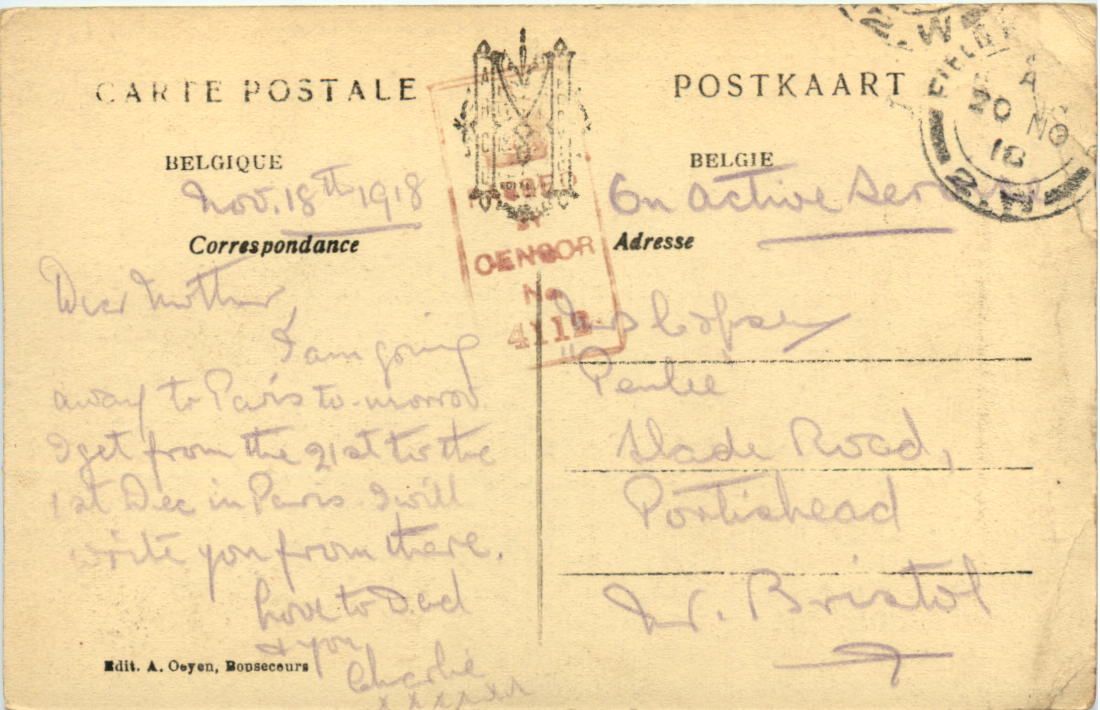 CARTE POSTALE
POSTKAART
BELGIQUE
BELGIE
Nov. 18th 1918
On active service
Correspondance
Adresse
CENSOR
No
4112
FIELD
20 NO
18
Z.W
Z.W
Dear Mother,
I am going
away to Paris to-morrow
I get from the 21st to the
1st Dec in Paris. I will
write you from there.
Love to Dad
& you
Charlie
x x x x x x
Mrs Copsey
Penlee
Slade Road,
Portishead
Nr. Bristol
Edit. A. Oeyen, Bonsecours